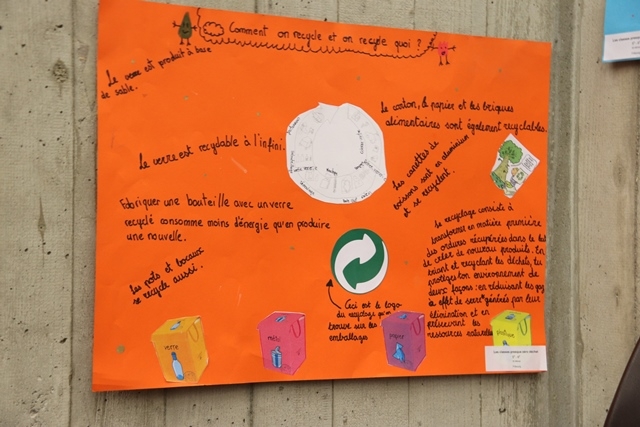 Comment on recycle et on recycle quoi ?
Le verre est produit à base
de sable.
Le carton, le papier et les briques
alimentaires sont également recyclables.
Le verre est recyclable à l'infini.
Les canettes de
boissons sont en aluminium
et se recyclent.
Fabriquer une bouteille avec un verre
recyclé consomme moins d'énergie qu'en produire
une nouvelle.
Les pots et bocaux
se recycle aussi.
Le recyclage consiste à
transformer en matière première
des ordures récupérées dans le but
de créer de nouveau produits. En
triant et recyclant les déchets, tu
protèges ton environnement de
deux façons : en réduisant les gaz
à effet de serre générés par leur
élimination et en
préservant les
ressources naturelles
Ceci est le logo
du recyclage qu'on
trouve sur les
emballages
verre
métal
papier